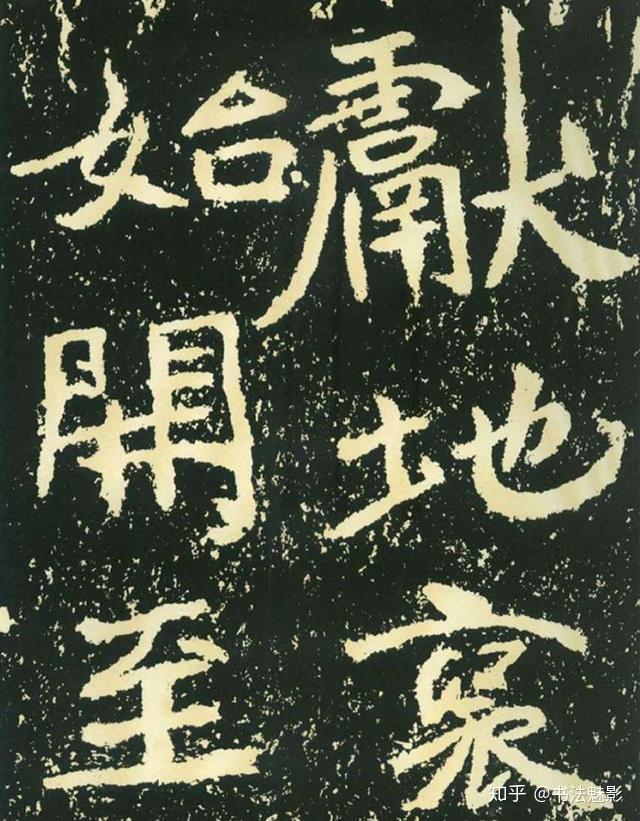 獻地褒
始開至
知乎 @书法魅影